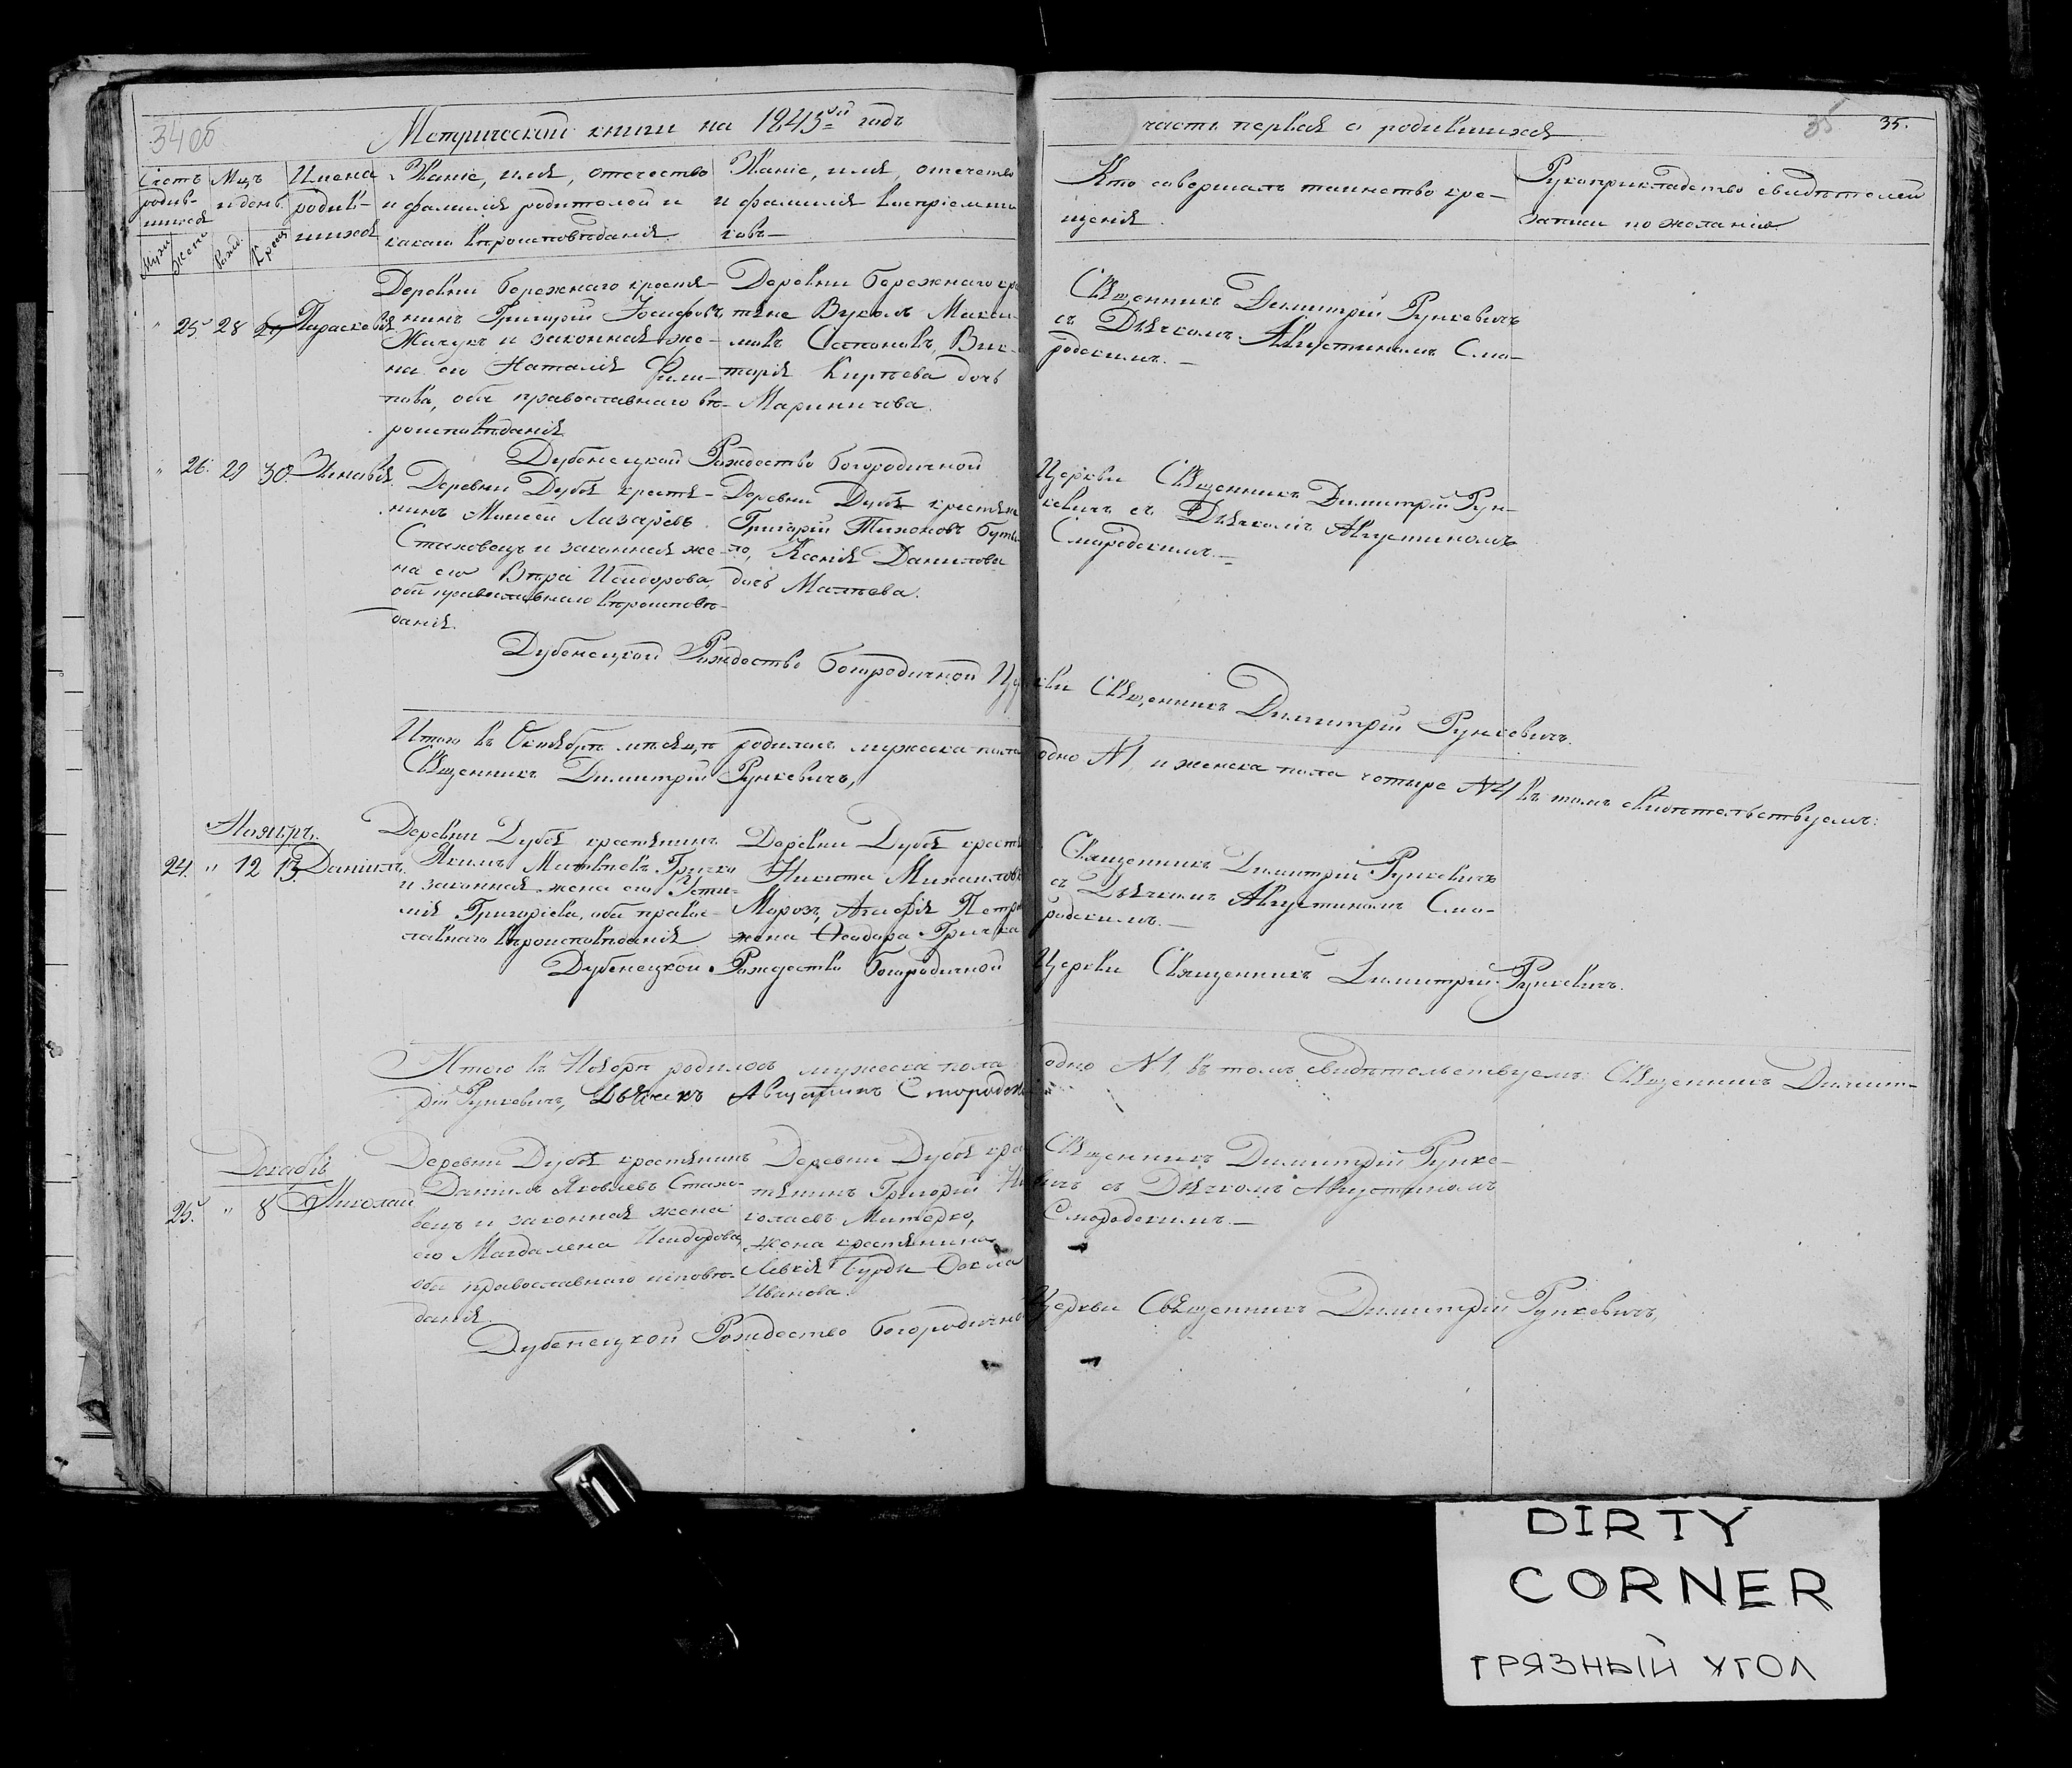 34 об
Метрической книги на 1845ый годъ
часть первая о родившихся
35
35.
Счетъ родив-шихся
Муж. Жен.
Мцъ и день.
Рожд. Крещ.
Имена родив-шихся
Званіе, имя, отечество
и фамилія родителей и
какаго вѣроисповѣданія.
Званіе, имя, отечество
и фамилія воспріемни
ковъ
Кто совершалъ таинство кре-
щенія.
Рукоприкладство свидѣтелей
записи по желанію.
" 25 28 29 Параскевія
Деревни Бережнаго крестя-
нинъ Григорій Іосифовъ
Жичукъ и законная же-
на его Наталія Фили-
пова, оба православнаго вѣ-
роисповѣданія
Деревни Бережнаго кре
тяне Вуколъ Макси-
мовъ Степановъ, Вик-
торія Кирѣева дочь
Мариничева.
Священникъ Димитрій Рункевичъ
съ Дьячкомъ Августиномъ Смо-
родскимъ.
Дубенецкой Рождество Богородичной Церкви Священникъ Димитрій Рун-
кевичъ съ Дьячкомъ Августиномъ
Смородскимъ.
" 26. 29 30. Зиновія
Деревни Дубя крестя-
нинъ Моисей Лазаревъ
Стаховецъ и законная же-
на его Вѣра Исидорова,
оба православнаго вѣроисповѣ-
данія.
Деревни Дубя крестян
Григорій Тихоновъ Буты
ло, Ксенія Данилова
дочь Малѣева.
Дубенецкой Рождество Богородичной Церкви Священникъ Димитрій Рункевичъ.
Итого въ Октябрѣ мѣсяцѣ родилось мужеска пола одно №1, и женска пола четыре №4 въ томъ свидѣтельствуемъ:
Священникъ Димитрій Рункевичъ,
Ноябрь.
24. " 12 13. Даніилъ
Деревни Дубя крестянинъ
Якимъ Матвѣевъ Гричко
и законная жена его Усти-
нія Григоріева, оба правос-
лавнаго вѣроисповѣданія
Деревни Дубя крестя
Никита Михаиловъ
Морозъ, Агафія Петро
жена Ѳеодора Гричка
Священникъ Димитрій Рункевичъ
съ Дьячкомъ Августиномъ Смо-
родскимъ.
Дубенецкой Рождество Богородичной Церкви Священникъ Димитрій Рункевичъ.
Итого въ Ноябрѣ родилось мужеска пола одно №1, въ томъ свидѣтельствуемъ: Священникъ Димит-
рій Рункевичъ, Дьячекъ Августинъ Смородскій
Декабрь
25. " 8 Николай
Деревни Дубя крестянинъ
Даніилъ Яковлевъ Стахо-
вецъ и законная жена
его Магдалена Исидорова,
оба православнаго исповѣ-
данія.
Деревни Дубя кре
тянинъ Григорій Ни
колаевъ Митерко,
жена крестянина
Левкія Бурды Ѳекла
Иванова.
Священникъ Димитрій Рунке-
вичъ съ Дьячкомъ Августиномъ
Смородскимъ.
Дубенецкой Рождество Богородичной Церкви Священникъ Димитрій Рункевичъ,
DIRTY
CORNER
ГРЯЗНЫЙ УГОЛ